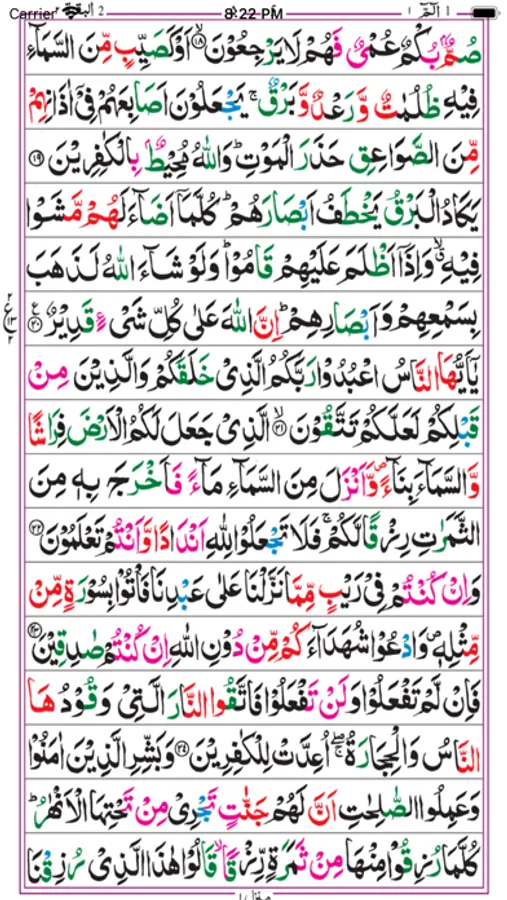 Carrier 8:22 PM
٢ البقرة ٢ الٓمّٓ ١
صُمٌّۢ بُكْمٌ عُمْیٌ فَهُمْ لَا یَرْجِعُوْنَ ۙ﴿۱۸﴾ اَوْ كَصَیِّبٍ مِّنَ السَّمَآءِ
فِیْهِ ظُلُمٰتٌ وَّ رَعْدٌ وَّ بَرْقٌ ۚ یَجْعَلُوْنَ اَصَابِعَهُمْ فِیْۤ اٰذَانِهِمْ
مِّنَ الصَّوَاعِقِ حَذَرَ الْمَوْتِ ؕ وَ اللّٰهُ مُحِیْطٌۢ بِالْكٰفِرِیْنَ ﴿۱۹﴾
یَكَادُ الْبَرْقُ یَخْطَفُ اَبْصَارَهُمْ ؕ كُلَّمَاۤ اَضَآءَ لَهُمْ مَّشَوْا
فِیْهِ ۙۗ وَ اِذَاۤ اَظْلَمَ عَلَیْهِمْ قَامُوْا ؕ وَ لَوْ شَآءَ اللّٰهُ لَذَهَبَ
بِسَمْعِهِمْ وَ اَبْصَارِهِمْ ؕ اِنَّ اللّٰهَ عَلٰی كُلِّ شَیْءٍ قَدِیْرٌ ﴿۲۰﴾
یٰۤاَیُّهَا النَّاسُ اعْبُدُوْا رَبَّكُمُ الَّذِیْ خَلَقَكُمْ وَ الَّذِیْنَ مِنْ
قَبْلِكُمْ لَعَلَّكُمْ تَتَّقُوْنَ ۙ﴿۲۱﴾ الَّذِیْ جَعَلَ لَكُمُ الْاَرْضَ فِرَاشًا
وَّ السَّمَآءَ بِنَآءً ۪ وَّ اَنْزَلَ مِنَ السَّمَآءِ مَآءً فَاَخْرَجَ بِهٖ مِنَ
الثَّمَرٰتِ رِزْقًا لَّكُمْ ۚ فَلَا تَجْعَلُوْا لِلّٰهِ اَنْدَادًا وَّ اَنْتُمْ تَعْلَمُوْنَ ﴿۲۲﴾
وَ اِنْ كُنْتُمْ فِیْ رَیْبٍ مِّمَّا نَزَّلْنَا عَلٰی عَبْدِنَا فَاْتُوْا بِسُوْرَةٍ مِّنْ
مِّثْلِهٖ ۪ وَ ادْعُوْا شُهَدَآءَكُمْ مِّنْ دُوْنِ اللّٰهِ اِنْ كُنْتُمْ صٰدِقِیْنَ ﴿۲۳﴾
فَاِنْ لَّمْ تَفْعَلُوْا وَ لَنْ تَفْعَلُوْا فَاتَّقُوا النَّارَ الَّتِیْ وَقُوْدُهَا
النَّاسُ وَ الْحِجَارَةُ ۖۚ اُعِدَّتْ لِلْكٰفِرِیْنَ ﴿۲۴﴾ وَ بَشِّرِ الَّذِیْنَ اٰمَنُوْا
وَ عَمِلُوا الصّٰلِحٰتِ اَنَّ لَهُمْ جَنّٰتٍ تَجْرِیْ مِنْ تَحْتِهَا الْاَنْهٰرُ ؕ
كُلَّمَا رُزِقُوْا مِنْهَا مِنْ ثَمَرَةٍ رِّزْقًا ۙ قَالُوْا هٰذَا الَّذِیْ رُزِقْنَا
منزل ١